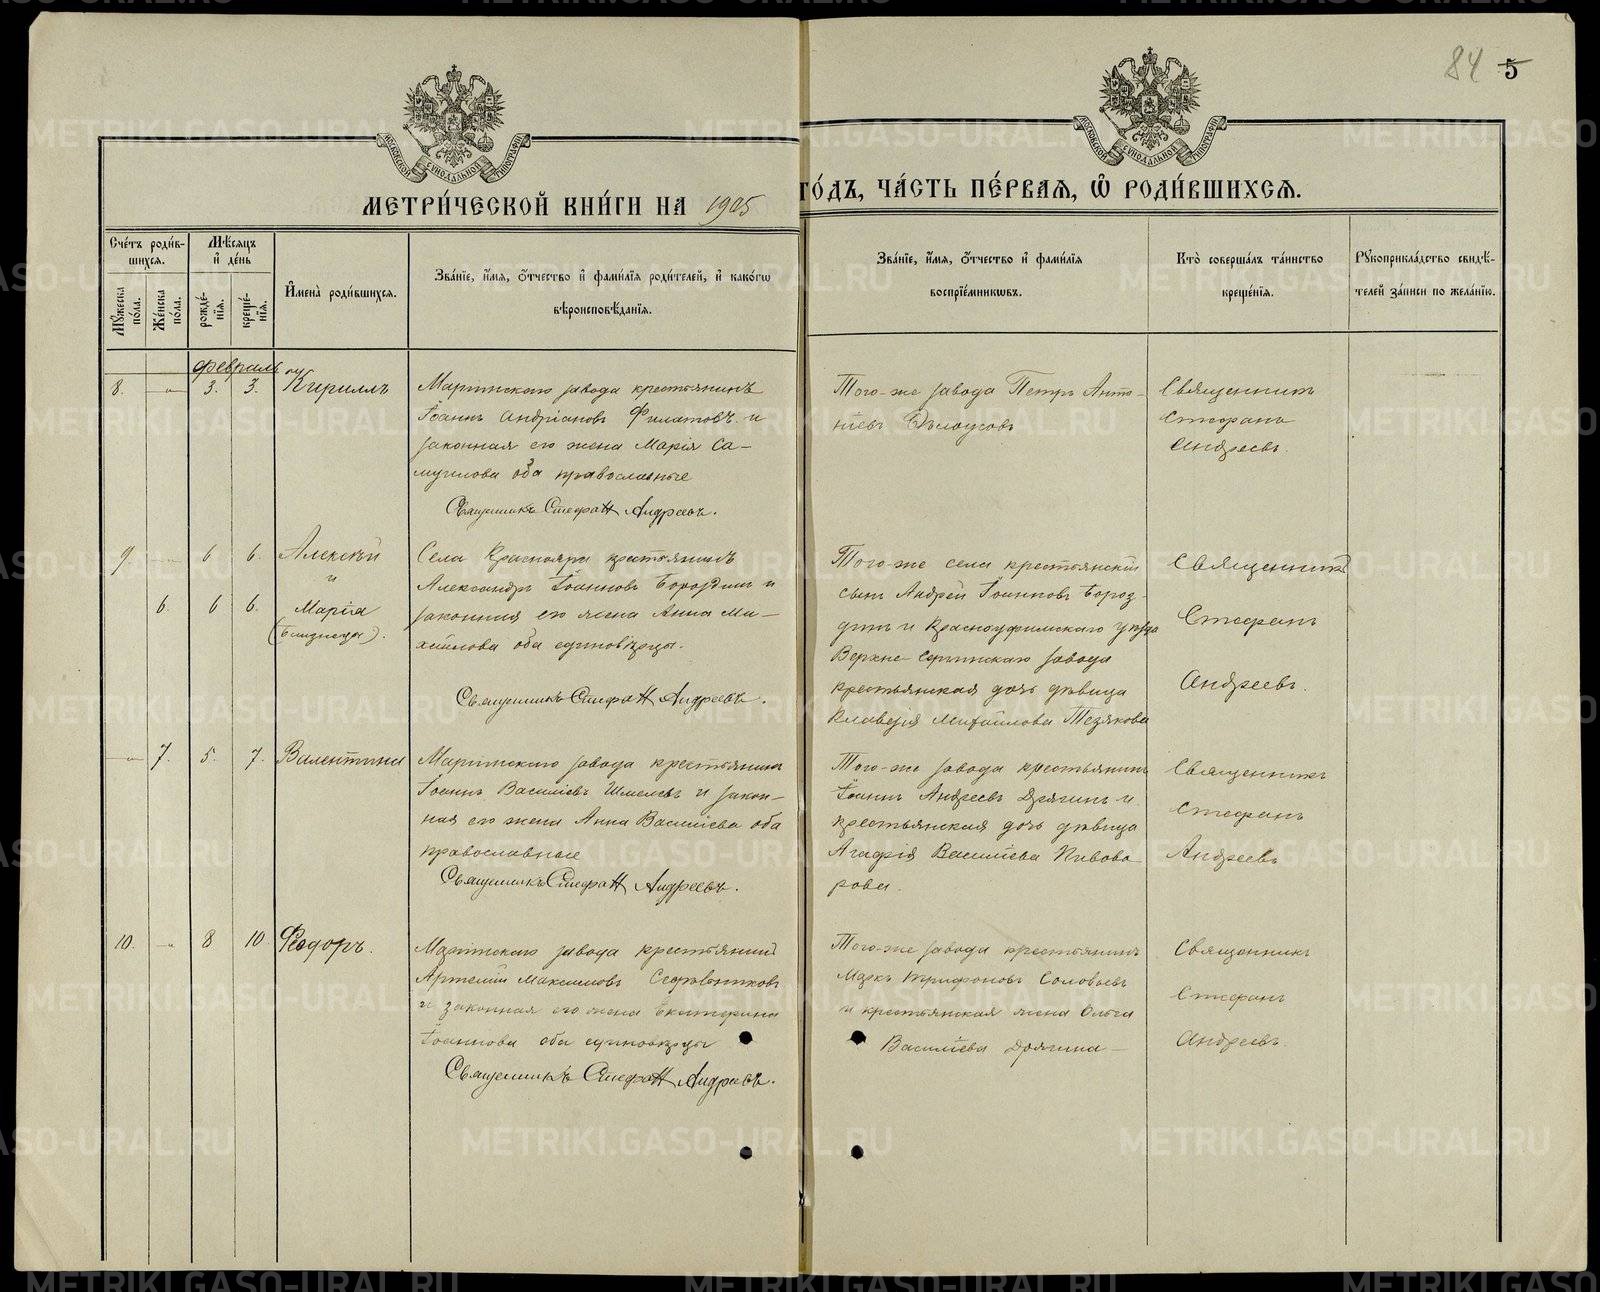 84 5
МОСКОВСКОЙ СУНОДАЛЬНОЙ ТИПОГРАФІИ
МОСКОВСКОЙ СУНОДАЛЬНОЙ ТИПОГРАФІИ
МЕТРИ́ЧЕСКОЙ КНИ́ГИ НА 1905 ГО́ДЪ, ЧА́СТЬ ПЕ́РВАЯ, Ѡ҆ РОДИ́ВШИХСѦ.
Сче́тъ роди́в-
шихсѧ.
Мꙋ́жеска по́ла.
Же́нска по́ла.
Мѣ́сѧцъ
и҆ де́нь
рожде́-
нїѧ.
креще́-
нїѧ.
И҆мена̀ роди́вшихсѧ.
Зва́нїе, и҆́мѧ, ѻ҆́тчество и҆ фами́лїѧ роди́телей, и҆ како́гѡ
вѣроисповѣ́данїѧ.
Зва́нїе, и҆́мѧ, ѻ҆́тчество и҆ фами́лїѧ
воспрїе́мникѡвъ.
Кто̀ соверша́лъ та́инство
креще́нїѧ.
Рꙋкоприкла́дство свидѣ́-
телей за́писи по жела́нїю.
февраль
8. — 3. 3. Кириллъ
Марiинскаго завода крестьянинъ
Iоаннъ Андрiановъ Филатовъ и
законная его жена Марiя Са-
муилова оба православные
Священникъ Стефанъ Андреевъ.
Того-же завода Петръ Анто-
нiевъ Бѣлоусовъ
Священникъ
Стефанъ
Андреевъ.
9. — 6 6. Алексѣй
и
6. 6 6. Марiя
(близнецы).
Села Краснояра крестьянинъ
Александръ Iоанновъ Бороздинъ и
законная его жена Анна Ми-
хайлова оба единовѣрцы.
Священникъ Стефанъ Андреевъ.
Того-же села крестьянскiй
сынъ Андрей Iоанновъ Бороз-
динъ и Красноуфимскаго уѣзда
Верхне-Сергинскаго завода
крестьянская дочь дѣвица
Клавдiя Михайлова Тезякова
Священникъ
Стефанъ
Андреевъ.
— 7. 5. 7. Валентина
Марiинскаго завода крестьянинъ
Iоаннъ Васильевъ Шмелевъ и закон-
ная его жена Анна Васильева оба
православные
Священникъ Стефанъ Андреевъ.
Того-же завода крестьянинъ
Iоаннъ Андреевъ Дрягинъ и
крестьянская дочь дѣвица
Агафiя Васильева Пивова-
рова.
Священникъ
Стефанъ
Андреевъ
10. — 8 10 Феодоръ.
Марiинскаго завода крестьянинъ
Артемiй Максимовъ
и законная его жена Екатерина
Iоаннова оба единовѣрцы
Священникъ Стефанъ Андреевъ.
Того-же завода крестьянинъ
Маркъ Трифоновъ Соловьевъ
и крестьянская жена Ольга
Васильева Дрягина —
Священникъ
Стефанъ
Андреевъ.
METRIKI.GASO-URAL.RU